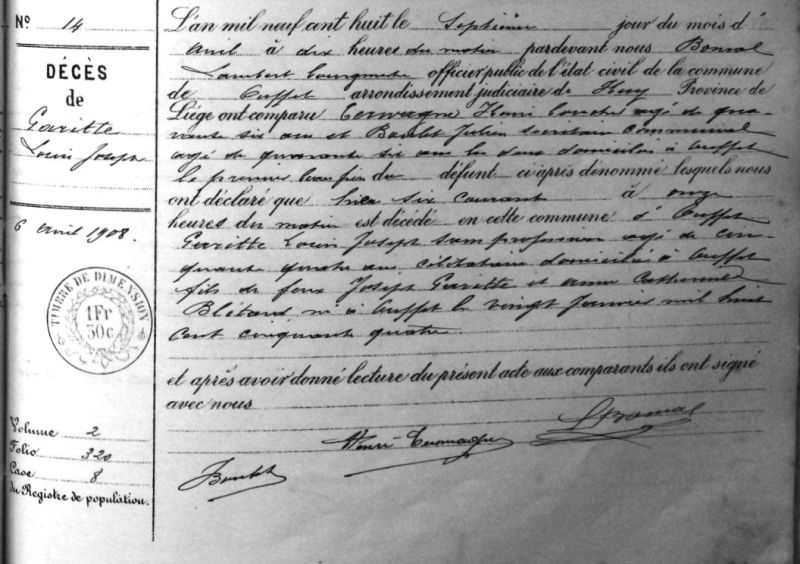 N° 14
DÉCÈS
de
Gavitte
Louis Joseph
6 avril 1908.
TIMBRE DE DIMENSION
1Fr
30c
Volume 2
Folio 320
Case 8
du Registre de population.
L'an mil neuf cent huit le Septième jour du mois d'
avril à dix heures du matin pardevant nous Bonval
Lambert officier public de l'état civil de la commune
de Ouffet arrondissement judiciaire de Huy Province de
Liége ont comparu Henri boucher agé de qua-
rante six ans et Boulet Julien secrétaire communal
agé de quarante six ans les deux domiciliés à Ouffet
le premier du défunt ci après dénommé lesquels nous
ont déclaré que hier six courant à onze
heures du matin est décédé en cette commune d'Ouffet
Gavitte Louis Joseph sans profession agé de cin-
quante quatre ans, célibataire domicilié à Ouffet
fils de feux Joseph Gavitte et anne Catherine
né à Ouffet le vingt Janvier mil huit
cent cinquante quatre.
et après avoir donné lecture du présent acte aux comparants ils ont signé
avec nous
Henri
Boulet